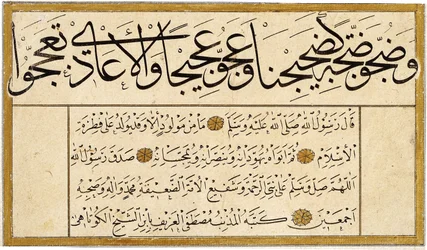 وضجوا ضجة كضجيجنا وعجوا عجيجا والأعادي تعجوا
قال رسول الله صلى الله عليه وسلم ما من مولود إلا وقد يولد على فطرة
الإسلام ثم أبواه يهودانه وينصرانه ويمجسانه صدق رسول الله
اللهم صل وسلم على نبي الرحمة وشفيع الأمة محمد وآله وصحبه
أجمعين كتبه المذنب مصطفى